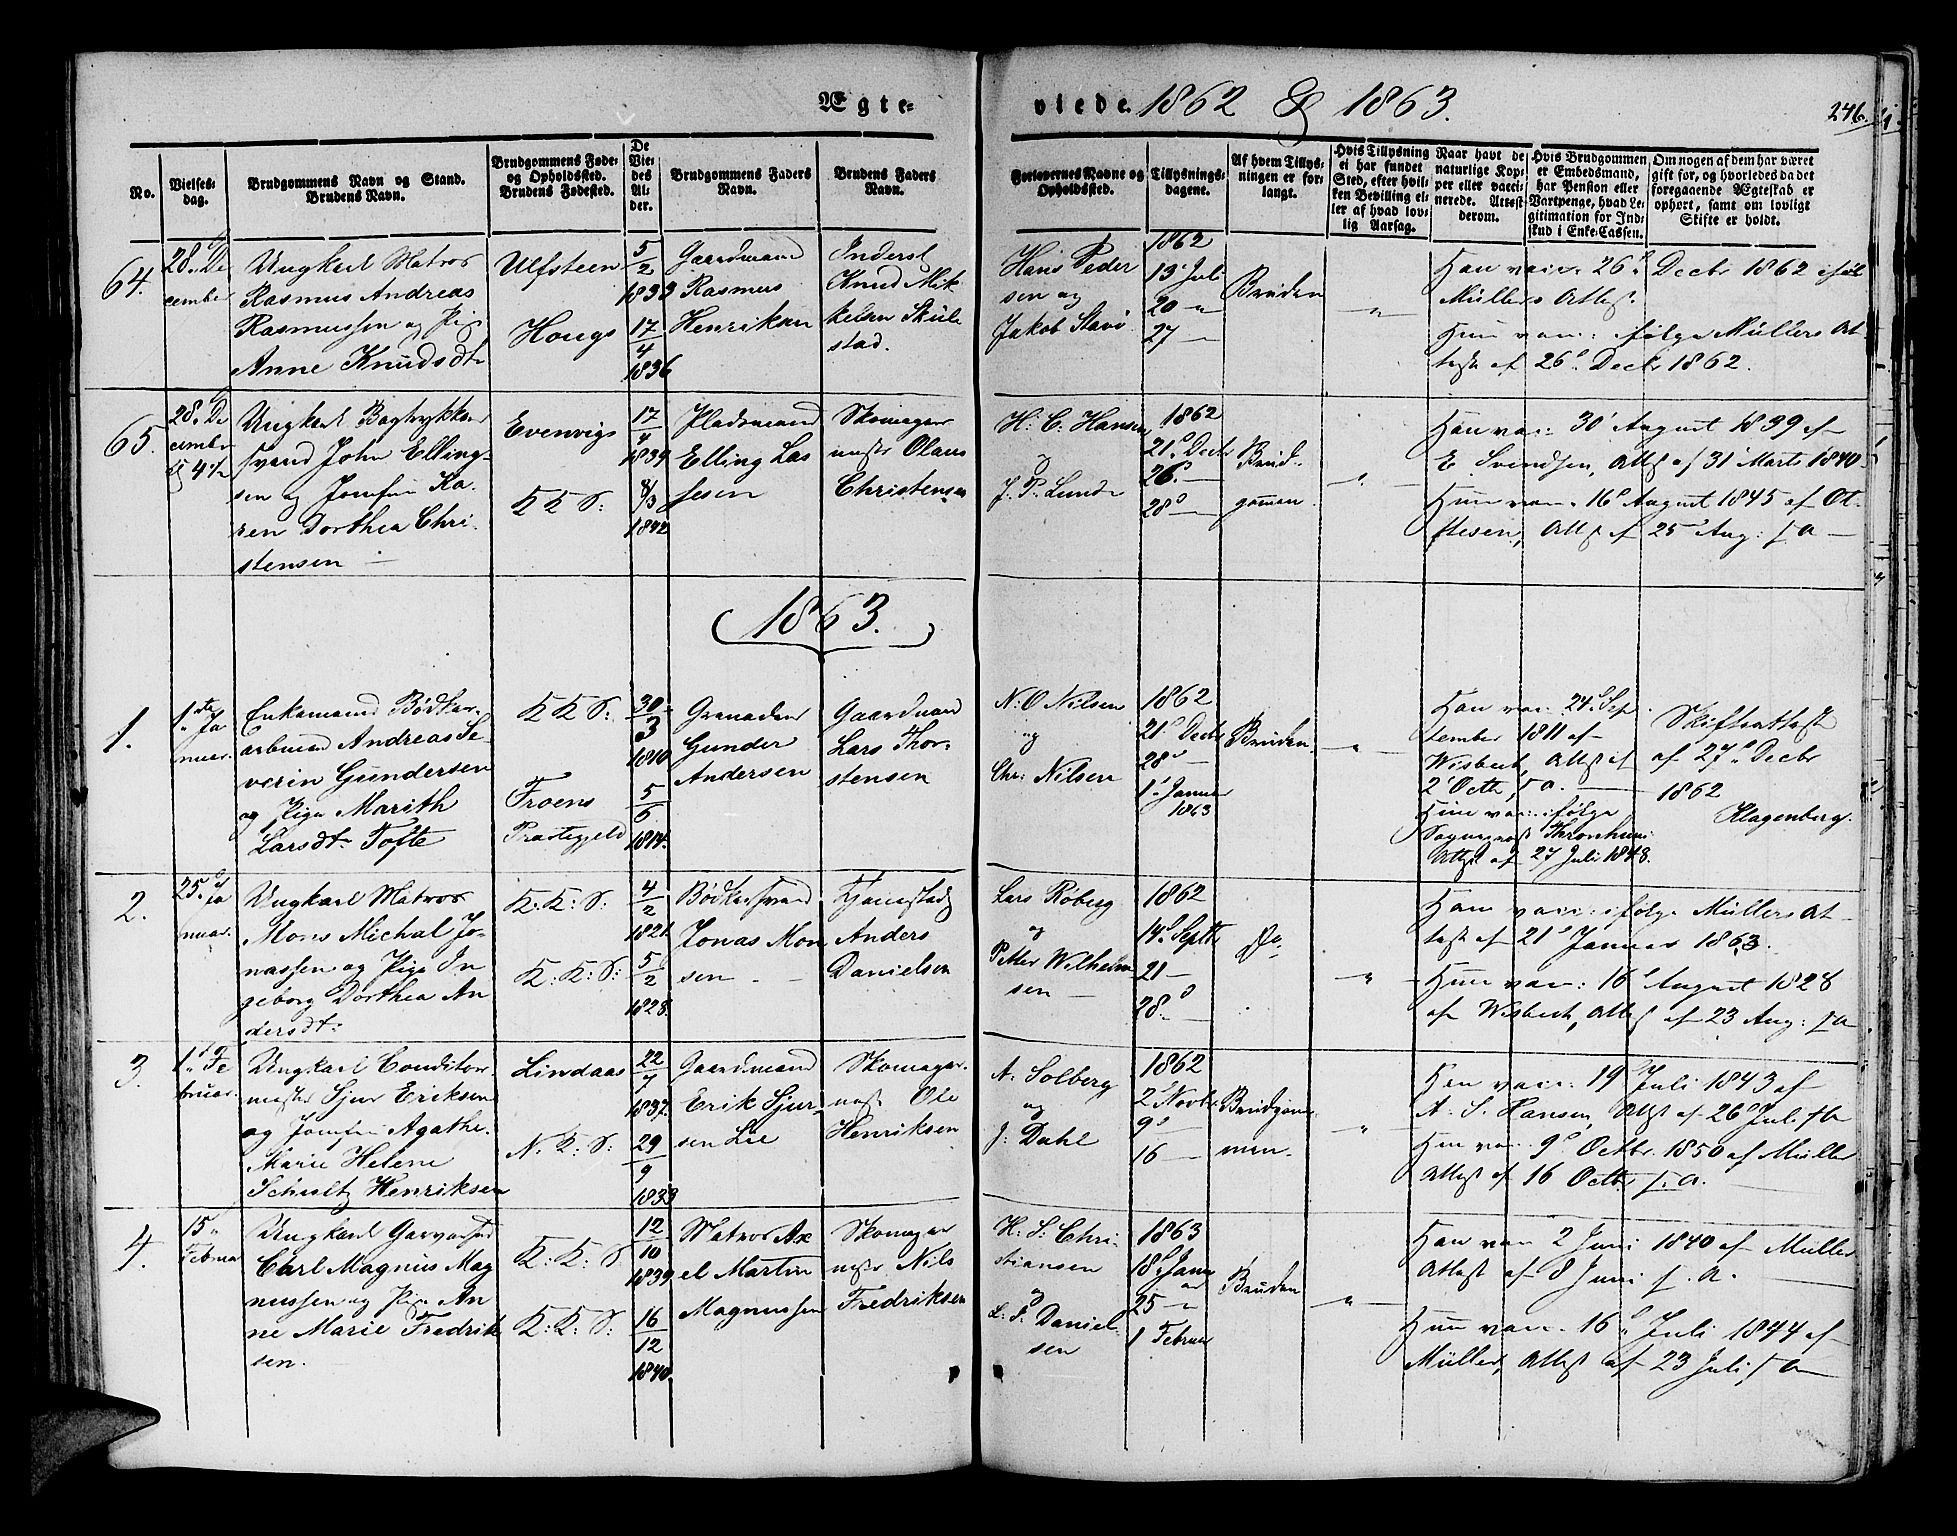 Ægte-
viede 1862 & 1863.
246.
No.
Vielses-
dag.
Brudgommens Navn og Stand.
Brudens Navn.
Brudgommens Føde-
og Opholdssted.
Brudens Fødested.
De
Vie-
des
Al-
der.
Brudgommens Faders
Navn.
Brudens Faders
Navn.
Forlovernes Navne og
Opholdssted.
Tillysnings-
dagene.
Af hvem Tillys-
ningen er for-
langt.
Hvis Tillysning
ei har fundet
Sted, efter hvil-
ken Bevilling el-
ler af hvad lov-
lig Aarsag.
Naar havt de
naturlige Kop-
per eller vacci-
nerede. Attest-
derom.
Hvis Brudgommen
er Embedsmand,
har Pension eller
Vartpenge, hvad Le-
gitimation for Ind-
skud i Enke-Cassen.
Om nogen af dem har været
gift før, og hvorledes da det
foregaaende Ægteskab er
ophørt, samt om lovligt
Skifte er holdt.
64.
28. De
cember
Ungkarl Matros
Rasmus Andreas
Rasmussen og Pige
Anne Knudsdtr
Ulfsteen
Hougs
5/2
1833
17/4
1836
Gaardmand
Rasmus
Henriksen
Inderst
Knud Mik
kelsen Skul
stad.
Hans Peder
sen og
Jakob Stavø
1862
13 Juli
20 "
27 —
Bruden
"
Han vacc: 26 Decbr 1862 iføl
Müllers Attest.
Hun vacc: ifølge Müllers At-
test af 26 Decbr 1862.
65.
28. De
cember
Kl 4 1/2
Ungkarl Bogtrykker
svend John Elling-
sen og Jomfru Ka-
ren Dorthea Chri-
stensen —
Evenvigs
K K S:
17/4
1834
8/3
1842
Pladsmand
Elling Las
sesen
Skomager
mester Olaus
Christensen
H. C. Hansen
og
J. P. Lund
1862
21 Decbr
26 —
28 —
Brud-
gommen
"
Han vac: 30 August 1839 af
E. Svendsen, Attest af 31 Marts 1840
Hun vac. 16 August 1845 af Ot-
tesen, Attest af 25 Aug: s. a —
1863.
1.
1ste Ja
nuar.
Enkemand Bødker-
arbeider Andreas Se-
verin Gundersen
og Pige Marith
Larsdt. Tofte
K K S:
Froens
Præstegjeld
30/3
1810
5/6
1814.
Grenader
Gunder
Andersen
Gaardmand
Lars Thor-
stensen
N. O Nilsen
og
Chr: Nilsen
1862
21 Decbr
28 —
1 Januar
1863
Bruden
"
Han vac: 24 Sep
tember 1811 af
Wisbech, Attest af
2 Octb. s. a. —
Hun vac: ifølge
Sognepræst Thronhuus
Attest af 27 Juli 1848.
Skifteattest
af 27 Decbr
1862
Klagenberg.
2.
25. Ja
nuar.
Ungkarl Matros
Mons Michal Jo-
nassen og Pige In
geborg Dorthea An
dersdt:
K: K: S:
K: K: S:
4/2
1821.
5/2
1828.
Bødkersvend
Jonas Mon
sen —
Anders
Danielsen
Lars Røberg
og
Petter Wilhelm
sen —
1862
14 Septbr
21 —
28 —
Do
"
Han vacc: ifølge Müllers At
test af 21 Januar 1863.
Hun vac: 16 August 1828
af Wisbech, Attest af 23 Aug: s. a
3.
1. Fe
bruar.
Ungkarl Conditor-
mester Sjur Eriksen
og Jomfru Agathe
Marie Helene
Schultz Henriksen
Lindaas
N. K: S:
22/7
1837.
29/9
1833
Gaardmand
Erik Sjur-
sen Lie
Skomager-
mest. Ole
Henriksen
A. Solberg
og
J. Dahl
1862
2 Novbr
9 —
16 —
Brudgom-
men.
"
Han vacc: 19 Juli 1843 af
A. S. Hansen, Attest af 26 Juli s. a
Hun vac. 9 Octbr. 1850 af Müller
Attest af 16 Octbr s. a.
4.
15
Februar
Ungkarl Garversvd
Carl Magnus Mag
nussen og Pige An
ne Marie Fredrik
sen.
K: K: S
K: K: S:
12/10
1839
16/12
1840.
Matros Ax
el Martin
Magnussen
Skomager
mester Nils
Fredriksen
H. S. Chri-
stiansen
og
L. P. Daniel-
sen
1863
18 Janu
ar
25 "
1 Februar
Bruden
"
Han vac 2 Juni 1840 af Müller
Attest af 8 Juni s. a.
Hun vac. 16 Juli 1844 af
Müller, Attest af 23 Juli s. a